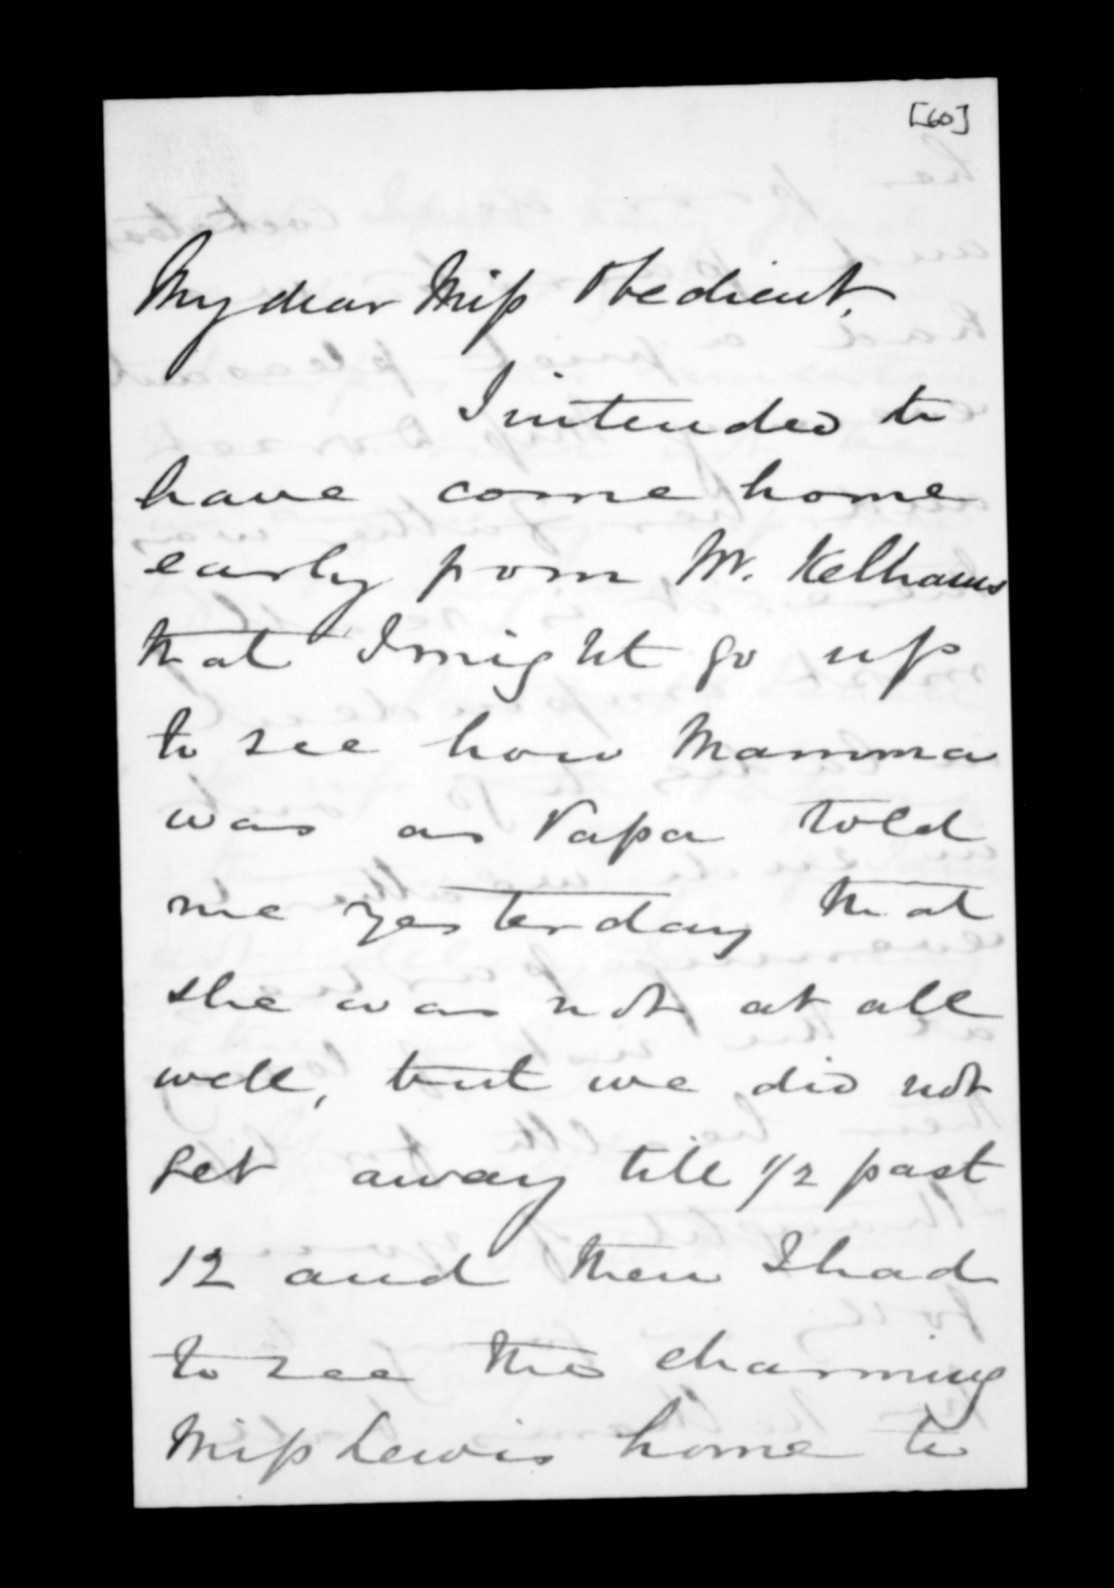 [60]
My dear Miss Obedient,
I intended to
have come home
early from Mr. Kelhams
that I might go up
to see how Mamma
was as Papa told
me yesterday that
she was not at all
well, but we did not
get away till 1/2 past
12 and then I had
to see the charming
Miss Lewis home to